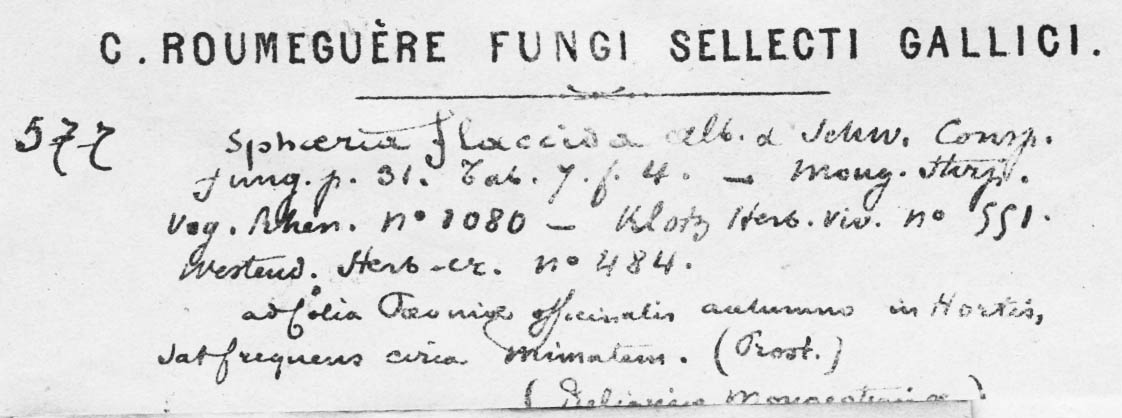 C. ROUMEGUÈRE FUNGI SELLECTI GALLICI.
577 Sphæria flaccida alb. & Schw. Consp.
fung. p. 31. Tab. 7. f. 4. — Moug. Stirp.
Vog. Rhen. nº 1080 — Klotz Herb. viv. nº 551.
Westend. Herb. cr. nº 484.
ad folia Pæoniæ officinalis autumno in Hortis,
sat frequens circa Mimatem. (Prost.)